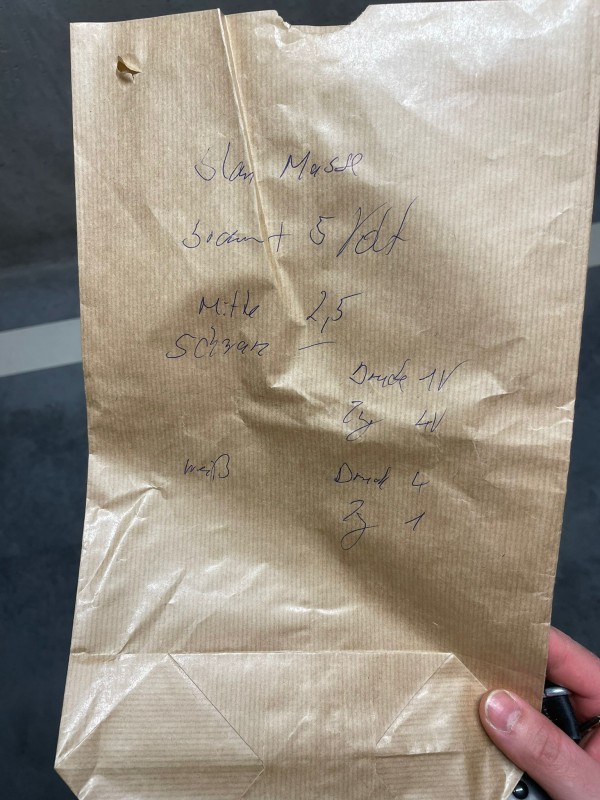 blau Masse
braun + 5 Volt
Mitte 2,5
Schwarz —
Druck 1V
Zug 4V
weiß Druck 4
Zug 1